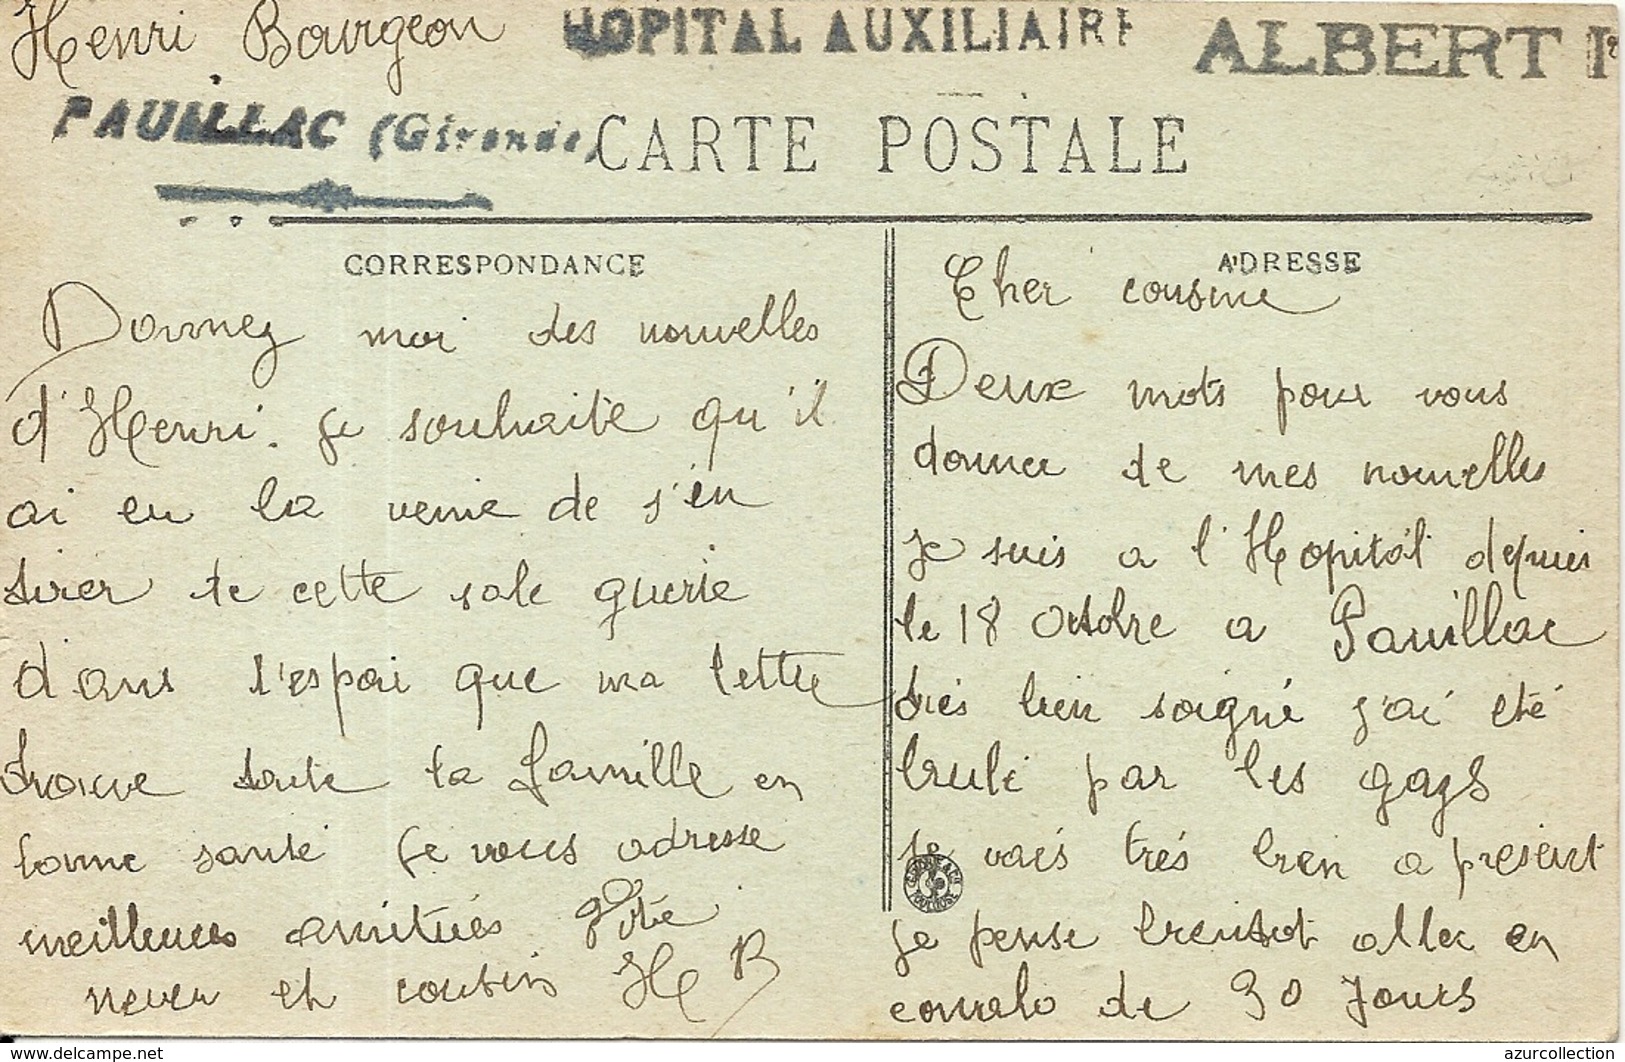 Henri Bourgeon
HOPITAL AUXILIAIRE
ALBERT I
PAUILLAC (Gironde)
CARTE POSTALE
CORRESPONDANCE
ADRESSE
Cher cousine
Deux mots pour vous
donner de mes nouvelles
je suis a l'Hopital depuis
le 18 Octobre a Pauillac
très bien soigné j'ai été
brulé par les gazs
je vais très bien a present
je pense bientot aller en
convalo de 30 Jours
Donnez moi des nouvelles
d'Henri. je souhaite qu'il
ai eu la veine de s'en
tirer de cette sale guerre
dans l'espoir que ma lettre
trouve toute ta famille en
bonne santé je vous adresse
meilleures amitiés
never et cousin H B
azurcollection
www.delcampe.net